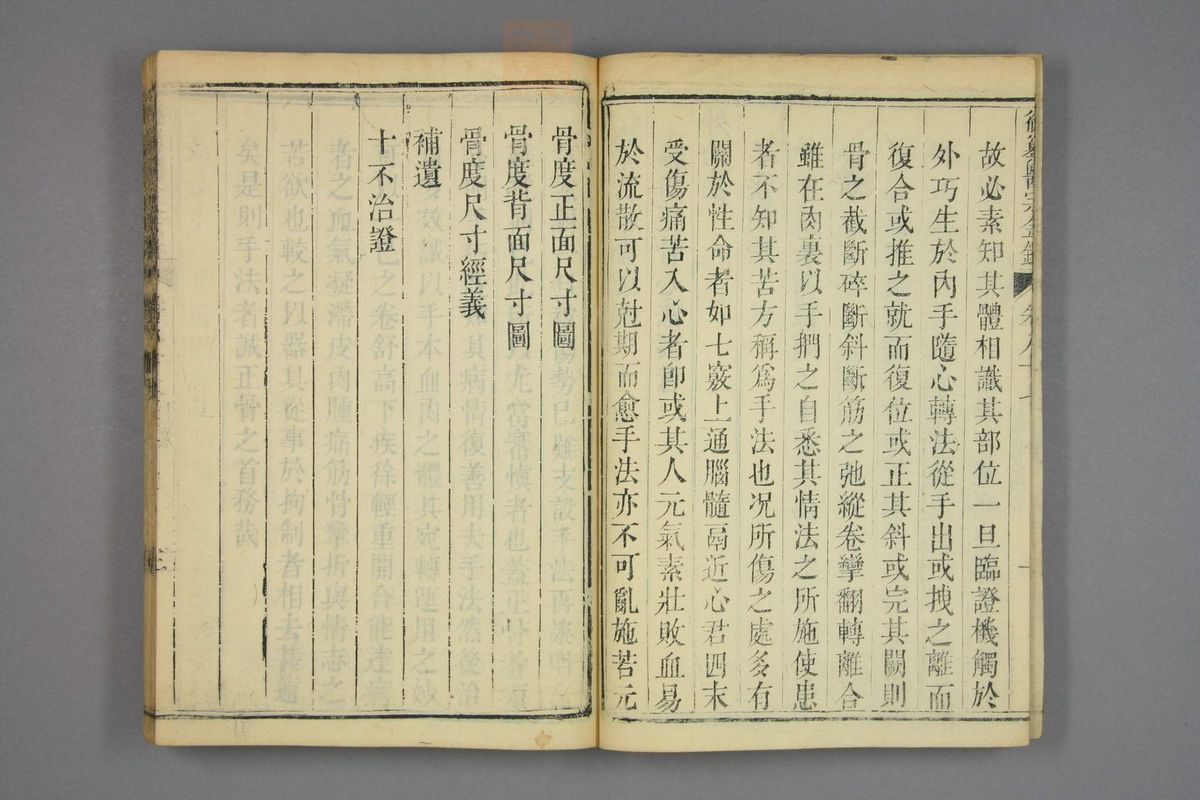 故必素知其體相識其部位一旦臨證機觸於
外巧生於內手隨心轉法從手出或拽之離而
復合或推之就而復位或正其斜或完其闕則
骨之截斷碎斷斜斷筋之弛縱卷攣翻轉離合
雖在肉裏以手捫之自悉其情法之所施使患
者不知其苦方稱爲手法也况所傷之處多有
關於性命者如七竅上通腦髓鬲近心君四末
受傷痛苦入心者卽或其人元氣素壯敗血易
於流散可以尅期而愈手法亦不可亂施若元
骨度正面尺寸圖
骨度背面尺寸圖
骨度尺寸經義
補遺
十不治證